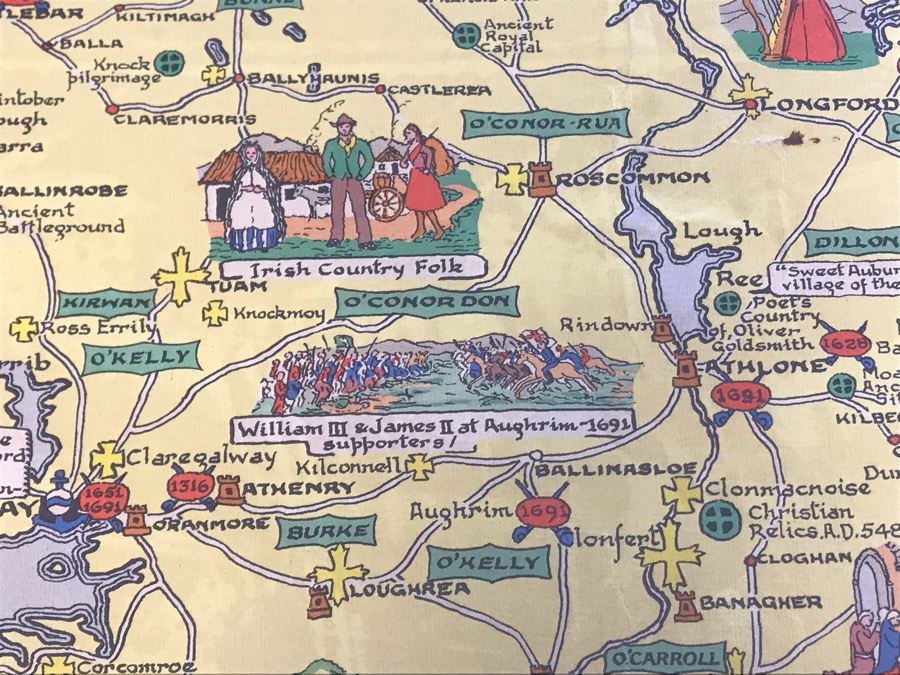 TLEBAR
KILTIMAGH
BURKE
BALLA
Knock
pilgrimage
BALLYHAUNIS
CASTLEREA
CLAREMORRIS
Ancient
Royal
Capital
LONGFORD
O'CONOR-RUA
ROSCOMMON
intober
ough
arra
ALLINROBE
Ancient
Battleground
Irish Country Folk
TUAM
KIRWAN
Ross Errily
Knockmoy
O'CONOR DON
O'KELLY
Lough
Ree
DILLON
"Sweet Aubur
village of the
Poet's
Country
of Oliver
Goldsmith
Rindown
1628
Ba
ATHLONE
1691
Moa
Anc
Sit
KILBE
rrib
William III & James II at Aughrim-1691
supporters!
Claregalway
Kilconnell
BALLINASLOE
e
ord
n-
AY
1651
1691
1316
ATHENRY
ORANMORE
Aughrim
1691
Clonmacnoise
Christian
Relics.A.D.548
Du
BURKE
O'KELLY
lonfert
CLOGHAN
LOUGHREA
BANAGHER
Corcomroe
O'CARROLL